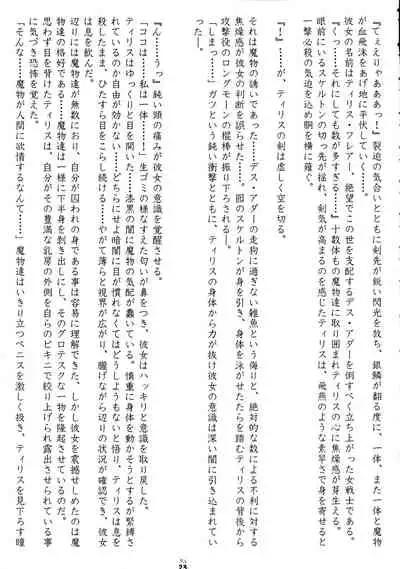 『てぇえりゃあああっ！』裂迫の気合いとともに剣先が鋭い閃光を放ち、銀鱗が翻る度に、一体、また一体と魔物
が血飛沫をあげ地に平伏していく――！
彼女の名前はティリス・フレアー、絶望でこの世を支配するデス・アダーを倒すべく立ち上がった女戦士である。
『くっ……それにしても数が多すぎる！』十数体もの魔物達に取り囲まれたティリスの心に焦燥感が芽生える。
眼前にいるスケルトンの切っ先が揺れ、剣気が高まるのを感じたティリスは、飛燕のような素早さで身を寄せると
一撃必殺の気合を込め胴を横に薙ぐ。
『！』――が、ティリスの剣は虚しく空を切る。
それは魔物の誘いであった……デス・アダーの走狗に過ぎない雑魚という侮りと、絶対的な数による不利に対する
焦燥感が彼女の判断を誤らせた……。囮のスケルトンが身を引き、身体を泳がせたたらを踏むティリスの背後から
攻撃役のロングモーンの棍棒が振り下ろされる――。
『しまっ――』ガツという鈍い衝撃とともに、ティリスの身体から力が抜け彼女の意識は深い闇に引き込まれてい
く――。
『ん……うっ』鈍い頭の痛みが彼女の意識を覚醒させる。
ティリスはゆっくりと目を開いた……漆黒の闇に魔物の気配が蠢いている。慎重に身体を動かそうとするが緊縛さ
『ココは……私は一体……！』生ゴミの様なすえた匂いが鼻をつき、彼女はハッキリと意識を取り戻した。
れているのか自由が効かない……どちらにせよ暗闇に目が慣れなくてはどうしようもないと悟り、ティリスは息を
殺し、ひたすら目をこらし続ける……やがて薄らと視界が広がり、朧げながら辺りの状況が確認でき、彼女
は息を飲んだ。
辺りには魔物達が無数におり、自分が囚われの身である事は容易に理解できた、しかし彼女を震撼せしめたのは魔
物達の格好である……魔物達は一様に下半身を剥き出しにし、そのグロテスクな一物を隆起させているのだ。
思わず目を背けたティリスは、自分がその豊満な乳房の外側を自らのビキニで絞り上げられ露出させられている事
に気づき恐怖を覚えた。
『そんな……魔物が人間に欲情するなんて……』魔物達はいきり立つペニスを激しく扱き、ティリスを見下ろす瞳
23